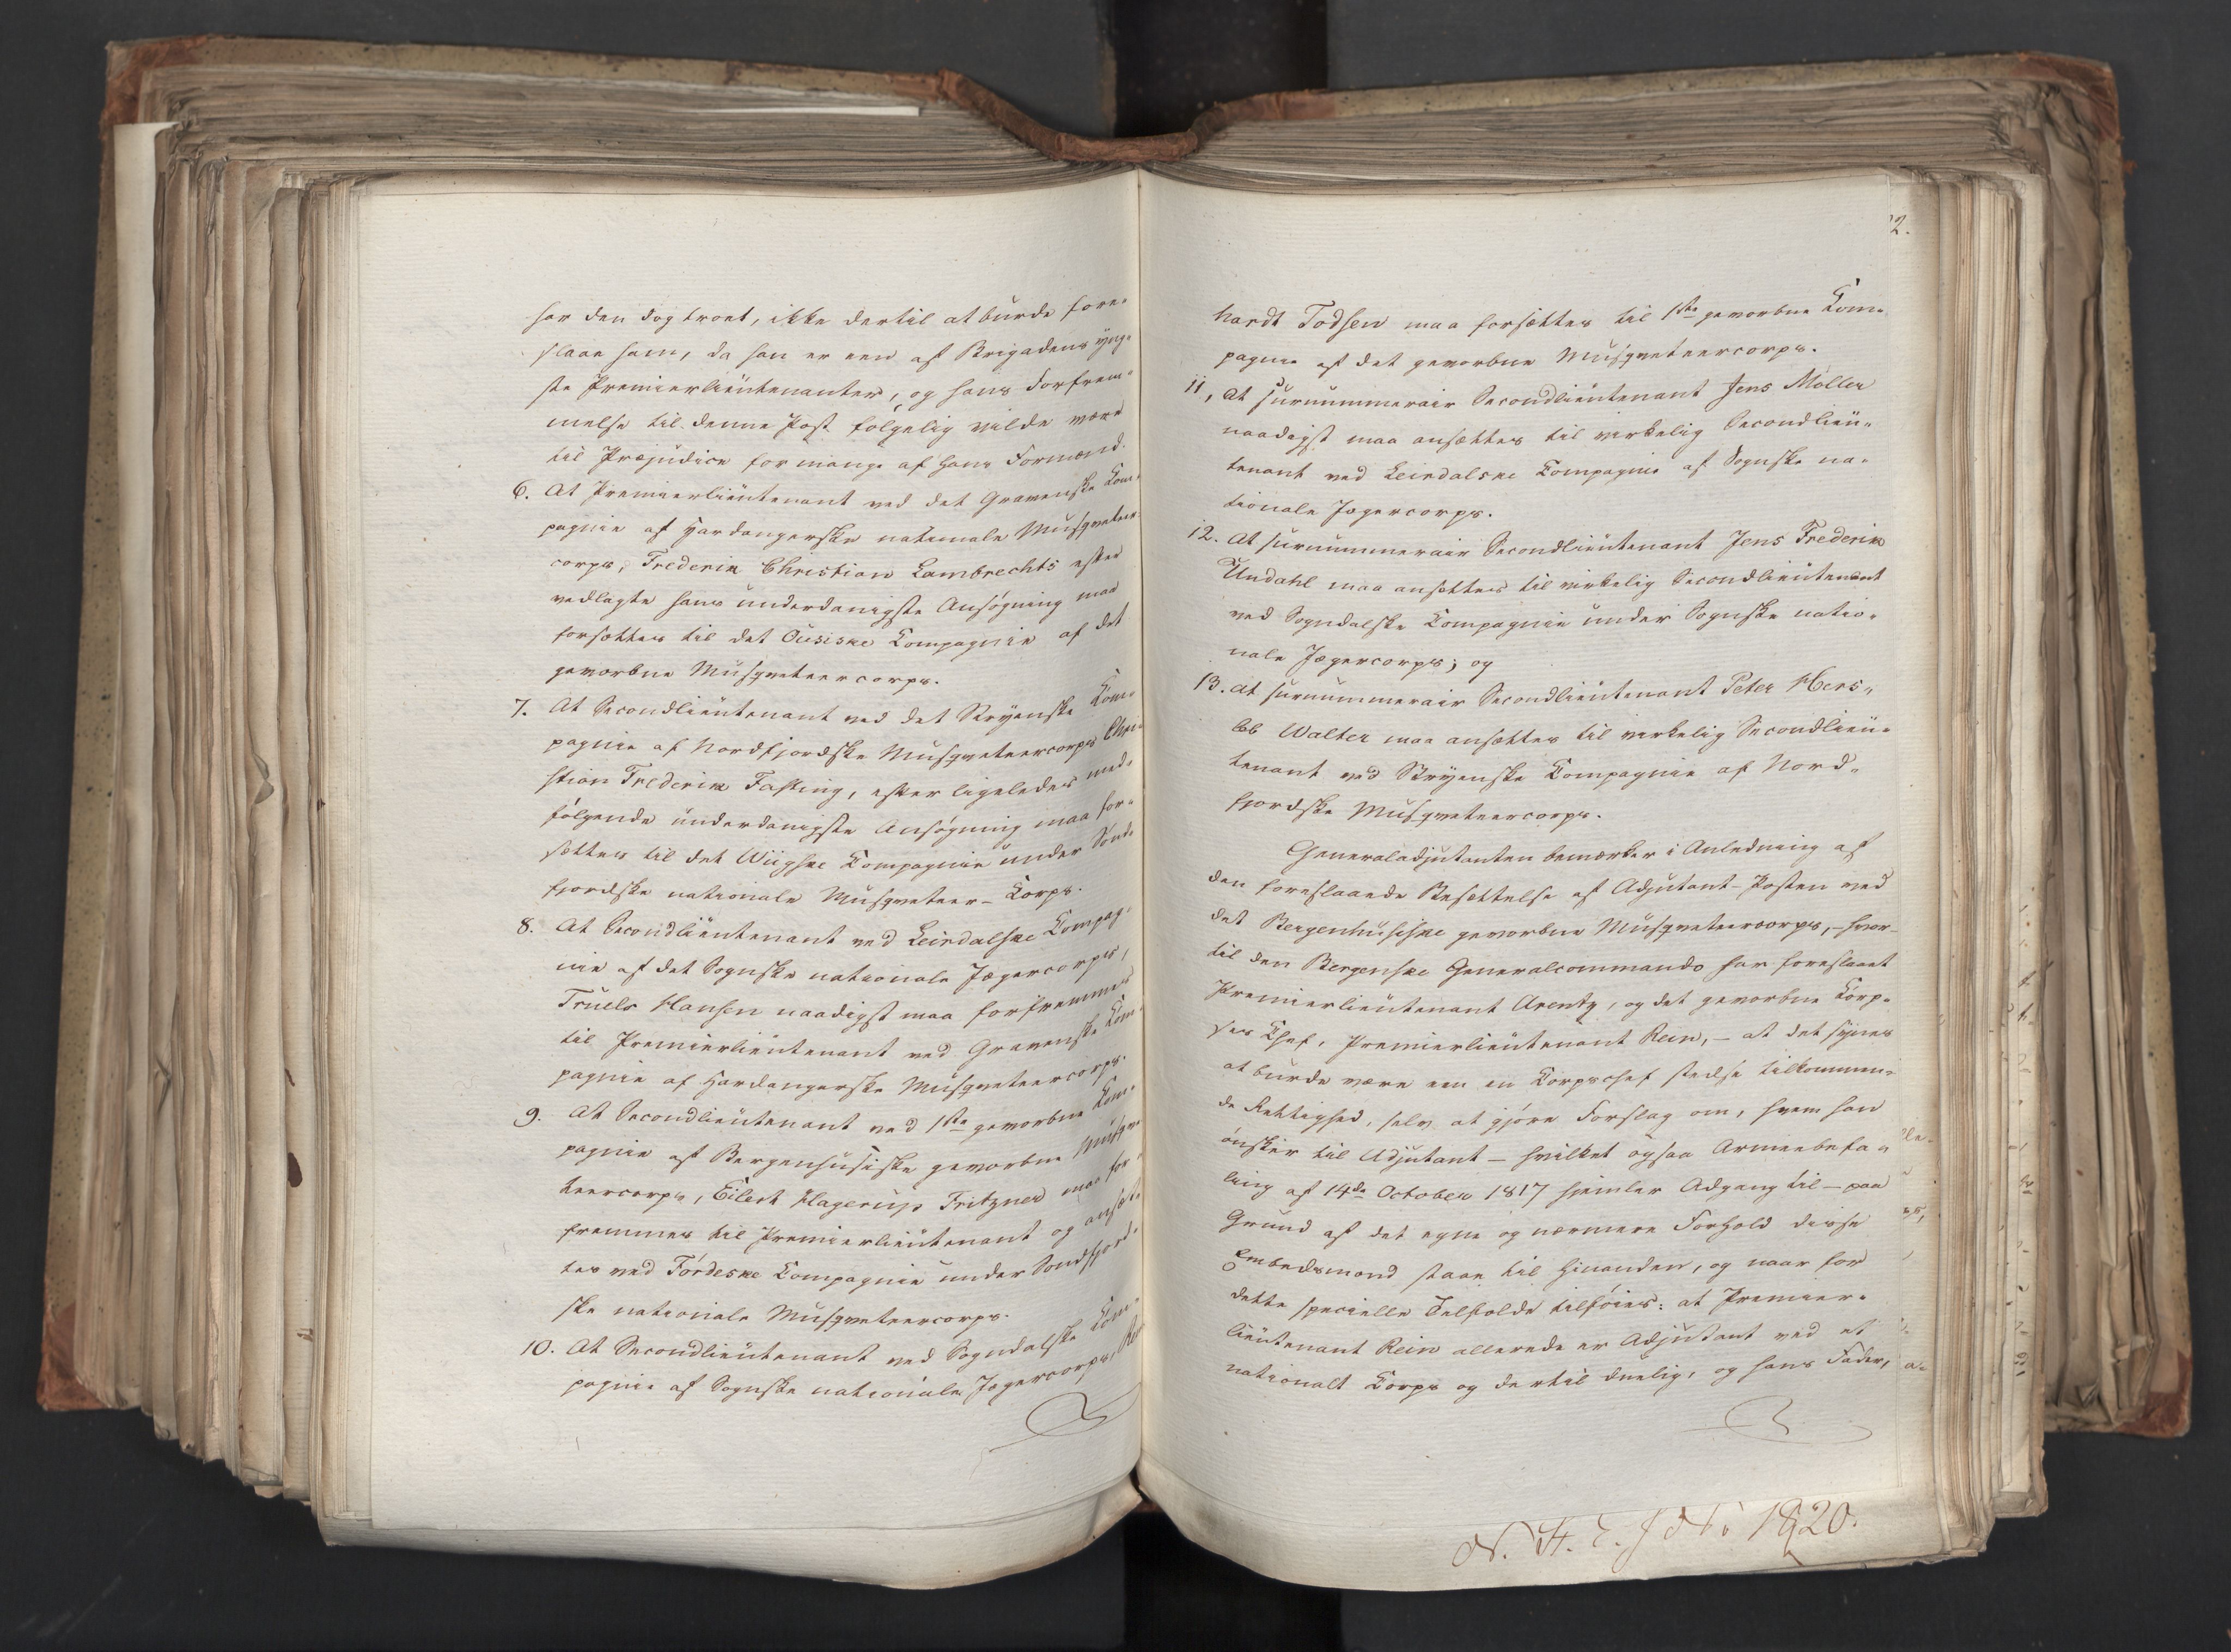 har den dog troet, ikke dertil at burde fore-
slaae ham, da han er een af Brigadens yng-
ste Premierlieutenanter, og hans Forfrem-
melse til denne Post følgelig vilde være
til Præjudice for mange af hans Formænd.
6. At Premierlieutenant ved det Gravenske Com-
pagnie af Hardangerske nationale Musqueteer-
corps, Frederik Christian Lambrechts efter
vedlagte hans underdanigste Ansøgning maa
forsættes til det Ousiske Compagnie af det
gevorbne Musqueteercorps.
7. At Secondlieutenant ved det Stryenske Com-
pagnie af Nordfjordske Musqueteercorps Chri-
stian Frederik Fasting, efter ligeledes med-
følgende underdanigste Ansøgning maa for-
sættes til det Wiigske Compagnie under Sønd-
fjordske nationale Musqueteer-Corps.
8. At Secondlieutenant ved Leirdalske Compag-
nie af det Sognske nationale Jægercorps,
Truels Hansen naadigst maa forfremmes
til Premierlieutenant ved Gravenske Com-
pagnie af Hardangerske Musqueteercorps.
9. At Secondlieutenant ved 1ste gevorbne Com-
pagnie af Bergenhusiske gevorbne Musque-
teercorps, Eilert Hagerup Fritzner maa for-
fremmes til Premierlieutenant og ansæt-
tes ved Førdeske Compagnie under Søndfjord-
ske nationale Musqueteercorps.
10. At Secondlieutenant ved Sogndalske Com-
pagnie af Sognske nationale Jægercorps,
2.
hardt Todsen maa forsættes til 1ste gevorbne Com-
pagnie af det gevorbne Musqueteercorps.
11, At surnummerair Secondlieutenant Jens Møller
naadigst maa ansættes til virkelig Secondlieu-
tenant ved Leirdalske Compagnie af Sognske na-
tionale Jægercorps.
12. At surnummerair Secondlieutenant Jens Frederik
Undahl maa ansættes til virkelig Secondlieutenant
ved Sogndalske Compagnie under Sognske natio-
nale Jægercorps; og
13. At surnummerair Secondlieutenant Peter Hers-
leb Walter maa ansættes til virkelig Secondlieu-
tenant ved Stryenske Compagnie af Nord-
fjordske Musqueteercorps.
Generaladjutanten bemærker i Anledning af
den foreslaaede Besættelse af Adjutant-Posten ved
det Bergenhusiske gevorbne Musqueteercorps, – hvor-
til den Bergenske Generalcommando har foreslaaet
Premierlieutenant Arentz, og det gevorbne Corp-
ses Chef, Premierlieutenant Rein, – at det synes
at burde være een en Corpschef stedse tilkommen-
de Rettighed, selv at gjøre Forslag om, hvem han
ønsker til Adjutant – hvilket ogsaa Armeebefa-
ling af 14de October 1817 hjemler Adgang til – paa
Grund af det egne og nærmere Forhold disse
Embedsmænd staae til hinanden, og naar for
dette specielle Tilfælde tilføies: at Premier-
lieutenant Rein allerede er Adjutant ved et
nationalt Corps og dertil duelig, og hans Fader,
1820.